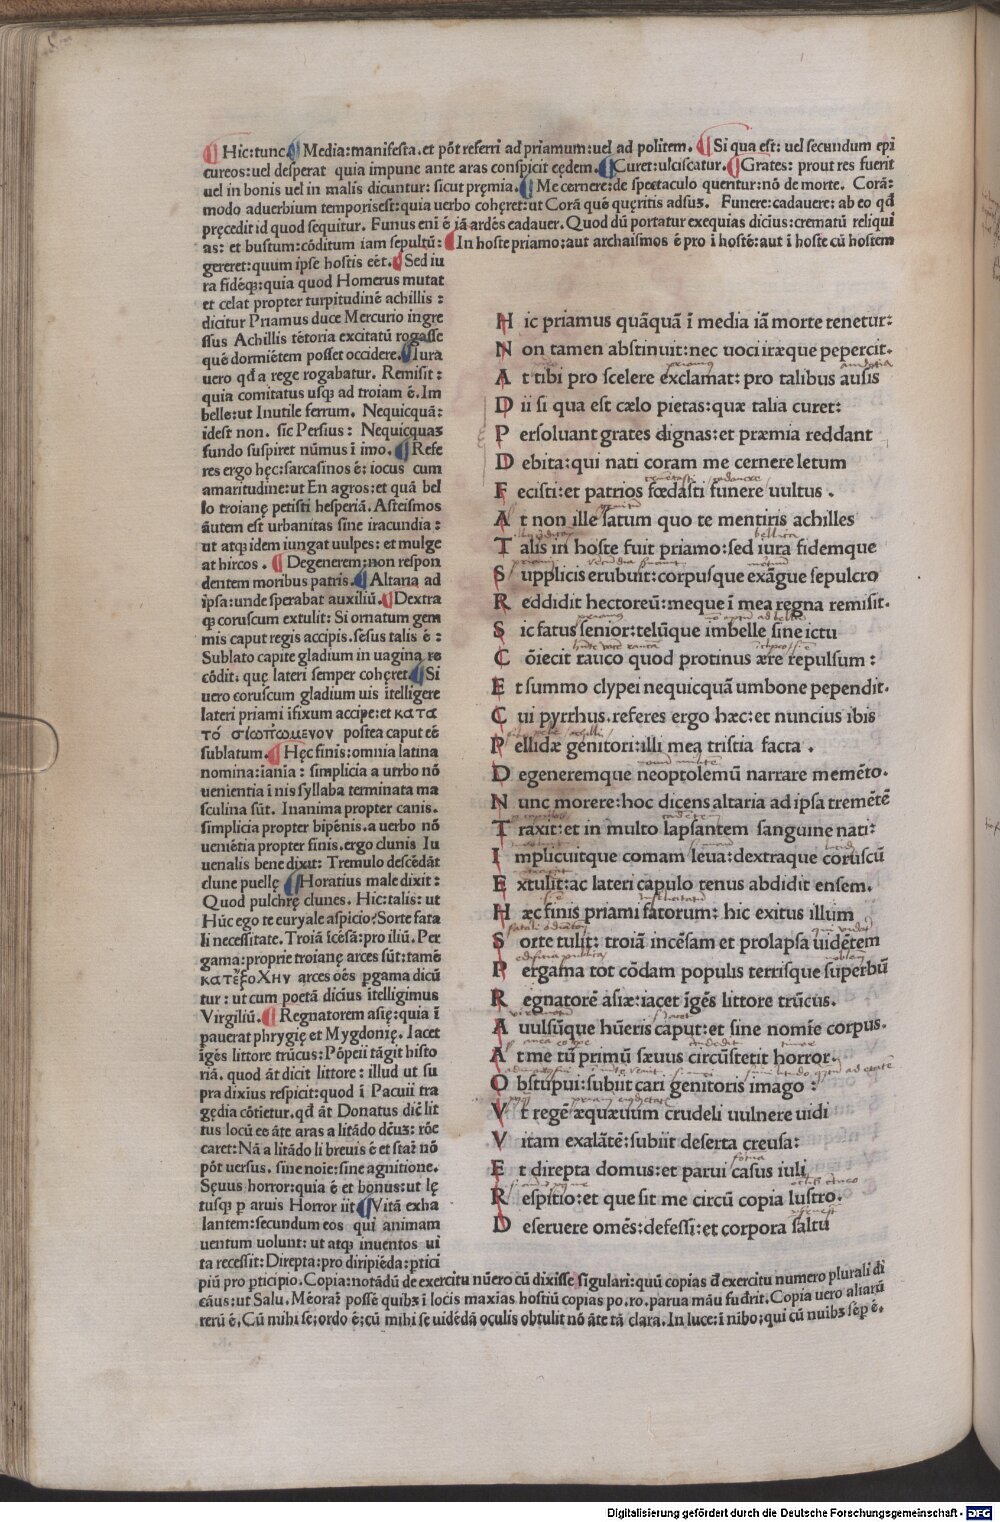 Hic:tunc. Media:manifesta.et põt referri ad priamum:uel ad politem. Si qua est: uel secundum epi
cureos:uel desperat quia impune ante aras conspicit cędem. Curet:ulciscatur. Grates: prout res fuerit
uel in bonis uel in malis dicuntur: sicut pręmia. Me cernere:de spectaculo quentur:nõ de morte. Corã:
modo aduerbium temporis est:quia uerbo cohęret:ut Corã quẽ quęritis adsuꝫ. Funere:cadauere: ab eo qđ
pręcedit id quod sequitur. Funus enĩ ẽ iã ardẽs cadauer. Quod dũ portatur exequias dicius:crematũ reliqui
as: et bustum:cõditum iam sepultũ: In hoste priamo:aut archaismos ẽ pro ĩ hostẽ:aut ĩ hoste cũ hostem
gereret:quum ipse hostis eẽt. Sed iu
ra fidẽqꝫ:quia quod Homerus mutat
et celat propter turpitudinẽ achillis :
dicitur Priamus duce Mercurio ingre
ssus Achillis tẽtoria excitatũ rogasse
quẽ dormiẽtem posset occidere. Iura
uero qđ a rege rogabatur. Remisit :
quia comitatus usqꝫ ad troiam ẽ. Im
belle:ut Inutile ferrum. Nequicquã:
idest non. sic Persius : Nequicquaꝫ
fundo suspiret nũmus ĩ imo. Refe
res ergo hęc:sarcasinos ẽ: iocus cum
amaritudine:ut En agros:et quã bel
lo troianę petisti hesperiã. Asteismos
ãutem est urbanitas sine iracundia :
ut atqꝫ idem iungat uulpes: et mulge
at hircos. Degenerem:non respon
dentem moribus patris. Altaria ad
ipsa:unde sperabat auxiliũ. Dextra
qꝫ coruscum extulit: Si ornatum gem
mis caput regis accipis.sesus talis ẽ :
Sublato capite gladium in uagina re
cõdit. quę lateri semper cohęret. Si
uero coruscum gladium uis ĩtelligere
lateri priami ĩfixum accipe:et κατα
τό σίωπώμενον postea caput eẽ
sublatum. Hęc finis:omnia latina
nomina:ĩania: simplicia a uerbo nõ
uenientia ĩ nis syllaba terminata ma
sculina sũt. Inanima propter canis.
simplicia propter bipẽnis.a uerbo nõ
ueniẽtia propter finis.ergo clunis Iu
uenalis bene dixit: Tremulo descẽdãt
clune puellę Horatius male dixit :
Quod pulchrę clunes. Hic:talis: ut
Hũc ego te euryale aspicio? Sorte fata
li necessitate. Troiã ĩcẽsã:pro iliũ. Per
gama:proprie troianę arces sũt:tamẽ
κατέξοΧην arces oẽs pgama dicũ
tur : ut cum poetã diciũs ĩtelligimus
Virgiliũ. Regnatorem asię:quia ĩ
pauerat phrygię et Mygdonię. Iacet
ĩgẽs littore trũcus: Põpeii tãgit histo
riã. quod ãt dicit littore : illud ut su
pra dixius respicit:quod ĩ Pacuii tra
gędia cõtietur.qđ ãt Donatus dicĩt lit
tus locũ eẽ ãte aras a litãdo dc̃uꝫ: rõe
caret: Nã a litãdo li breuis ẽ et staĩ nõ
põt uersus. sine noie:sine agnitione.
Sęuus horror:quia ẽ et bonus:ut lę
tusqꝫ p aruis Horror iit Vitã exha
lantem:secundum eos qui animam
uentum uolunt: ut atqꝫ inuentos ui
ta recessit: Direpta:pro diripiẽda:pticĩ
piũ pro pticipio. Copia:notãdũ de exercitu nũero cũ dixisse singulari:quũ copias đ exercitu numero plurali đi
cãus:ut Salu. Mẽoraĩ posse quibꝫ ĩ locis maxias hostiũ copias po. ro. parua mãu fuđrit. Copia uero aliarũ
rerũ ẽ. Cũ mihi se;ordo ẽ;cũ mihi se uidẽdã oculis obtulit nõ ãte tã clara. In luce:ĩ nĩbo;qui cũ nuibꝫ sẽp ẽ.
H ic priamus quãquã ĩ media iã morte tenetur:
N on tamen abstinuit:nec uoci iræque pepercit.
A t tibi pro scelere exclamat: pro talibus ausis
D ii si qua est cælo pietas:quæ talia curet:
P ersoluant grates dignas:et præmia reddant
D ebita:qui nati coram me cernere letum
F ecisti:et patrios fœdasti funere uultus .
A t non ille satum quo te mentiris achilles
T alis in hoste fuit priamo:sed iura fidemque
S upplicis erubuit:corpusque exãgue sepulcro
R eddidit hectoreũ:meque ĩ mea regna remisit.
S ic fatus senior:telũque imbelle sine ictu
C õiecit rauco quod protinus ære repulsum :
E t summo clypei nequicquã umbone pependit.
C ui pyrrhus.referes ergo hæc:et nuncius ibis
P ellidæ genitori:illi mea tristia facta .
D egeneremque neoptolemũ narrare memẽto.
N unc morere:hoc dicens altaria ad ipsa tremẽtẽ
T raxit:et in multo lapsantem sanguine nati:
I mplicuitque comam leua:dextraque coruscũ
E xtulit:ac lateri capulo tenus abdidit ensem.
H æc finis priami fatorum: hic exitus illum
S orte tulit: troiã incẽsam et prolapsa uidẽtem
P ergama tot cõdam populis terrisque superbũ
R egnatorẽ asiæ:iacet ĩgẽs littore trũcus.
A uulsũque hũeris caput:et sine nomĩe corpus.
A t me tũ primũ sæuus circũstetit horror.
O bstupui:subiit cari genitoris imago :
V t regẽ æquæuum crudeli uulnere uidi
V itam exalãtẽ:subiit deserta creusa:
E t direpta domus:et parui casus iuli
R espitio:et que sit me circũ copia lustro.
D eseruere omẽs:defessi:et corpora saltu
Digitalisierung gefördert durch die Deutsche Forschungsgemeinschaft - DFG